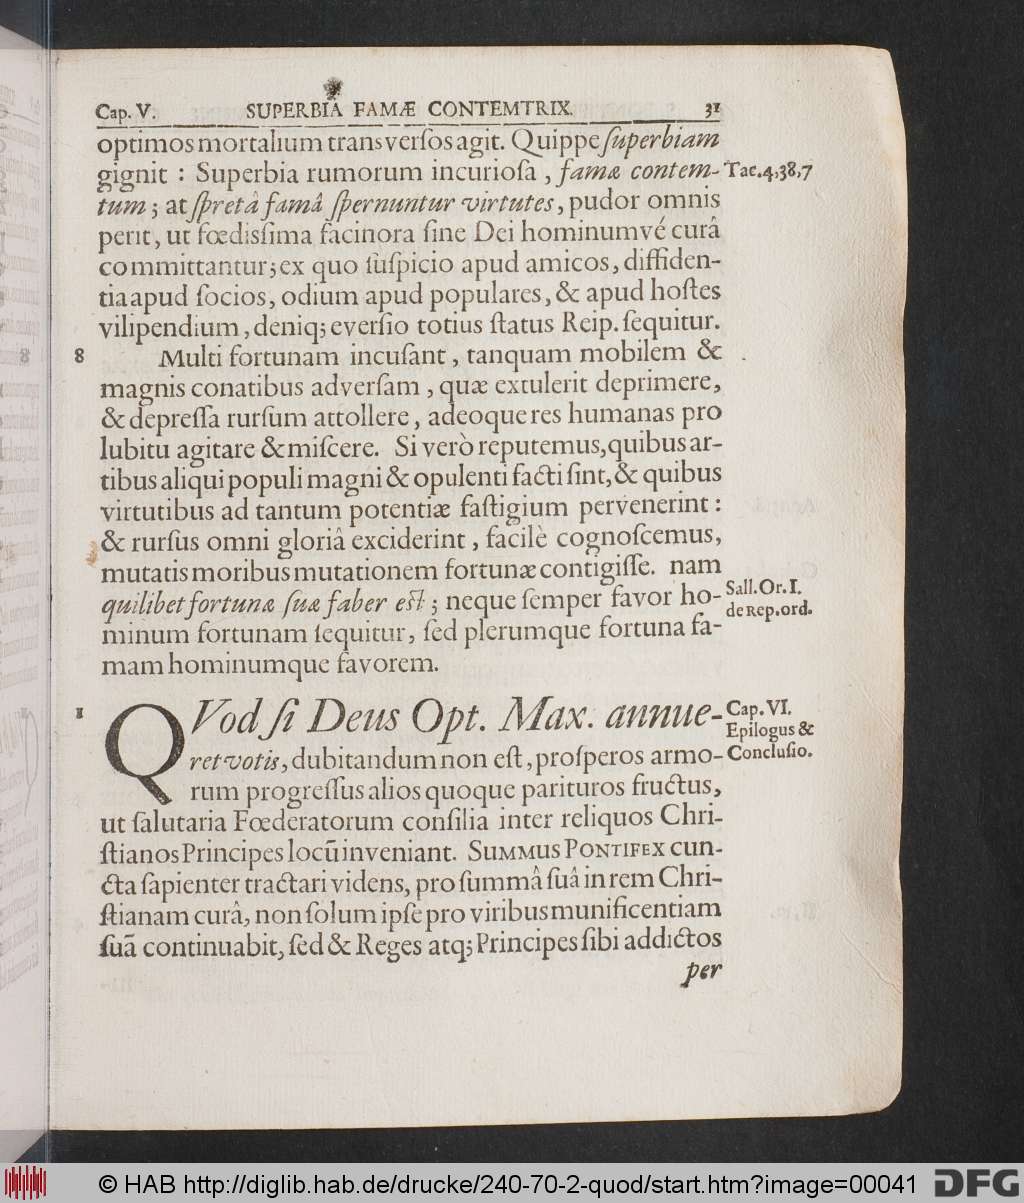 Cap. V. SUPERBIA FAMÆ CONTEMTRIX. 31
optimos mortalium transversos agit. Quippe ſuperbiam
gignit : Superbia rumorum incurioſa , famæ contem- Tac.4,38,7
tum ; at ſpretâ famâ ſpernuntur virtutes , pudor omnis
perit, ut fœdisſima facinora ſine Dei hominumvé curâ
committantur; ex quo ſuſpicio apud amicos, diffiden-
tia apud ſocios, odium apud populares, & apud hoſtes
vilipendium, deniq; everſio totius ſtatus Reip. ſequitur.
8 Multi fortunam incuſant , tanquam mobilem &
magnis conatibus adverſam , quæ extulerit deprimere,
& depreſſa rurſum attollere , adeoque res humanas pro
lubitu agitare & miſcere. Si verò reputemus, quibus ar-
tibus aliqui populi magni & opulenti facti ſint, & quibus
virtutibus ad tantum potentiæ faſtigium pervenerint :
& rurſus omni gloriâ exciderint , facilè cognoſcemus,
mutatis moribus mutationem fortunæ contigiſſe. nam
quilibet fortunæ ſuæ faber eſt ; neque ſemper favor ho- Sall. Or. I.
minum fortunam ſequitur, ſed plerumque fortuna fa- de Rep. ord.
mam hominumque favorem.
1 QVod ſi Deus Opt. Max. annue- Cap. VI.
Epilogus &
ret votis, dubitandum non eſt, proſperos armo- Concluſio.
rum progreſſus alios quoque parituros fructus,
ut ſalutaria Fœderatorum conſilia inter reliquos Chri-
ſtianos Principes locũ inveniant. SUMMUS PONTIFEX cun-
cta ſapienter tractari videns, pro ſummâ ſuâ in rem Chri-
ſtianam curâ, non ſolum ipſe pro viribus munificentiam
ſuã continuabit, ſed & Reges atq; Principes ſibi addictos
per
© HAB http://diglib.hab.de/drucke/240-70-2-quod/start.htm?image=00041 DFG